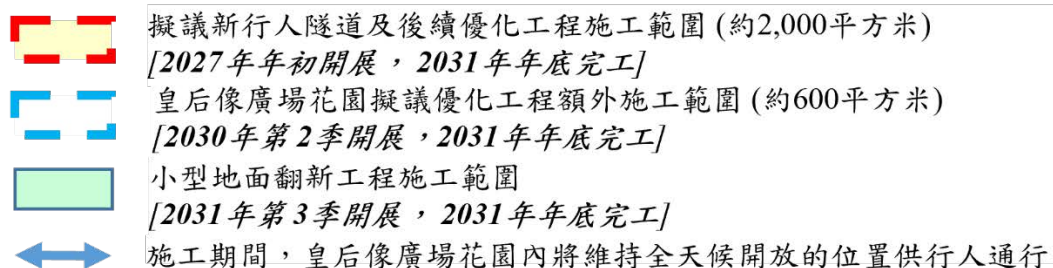 擬議新行人隧道及後續優化工程施工範圍 (約2,000平方米)
[2027年年初開展，2031年年底完工]
皇后像廣場花園擬議優化工程額外施工範圍 (約600平方米)
[2030年第2季開展，2031年年底完工]
小型地面翻新工程施工範圍
[2031年第3季開展，2031年年底完工]
施工期間，皇后像廣場花園內將維持全天候開放的位置供行人通行